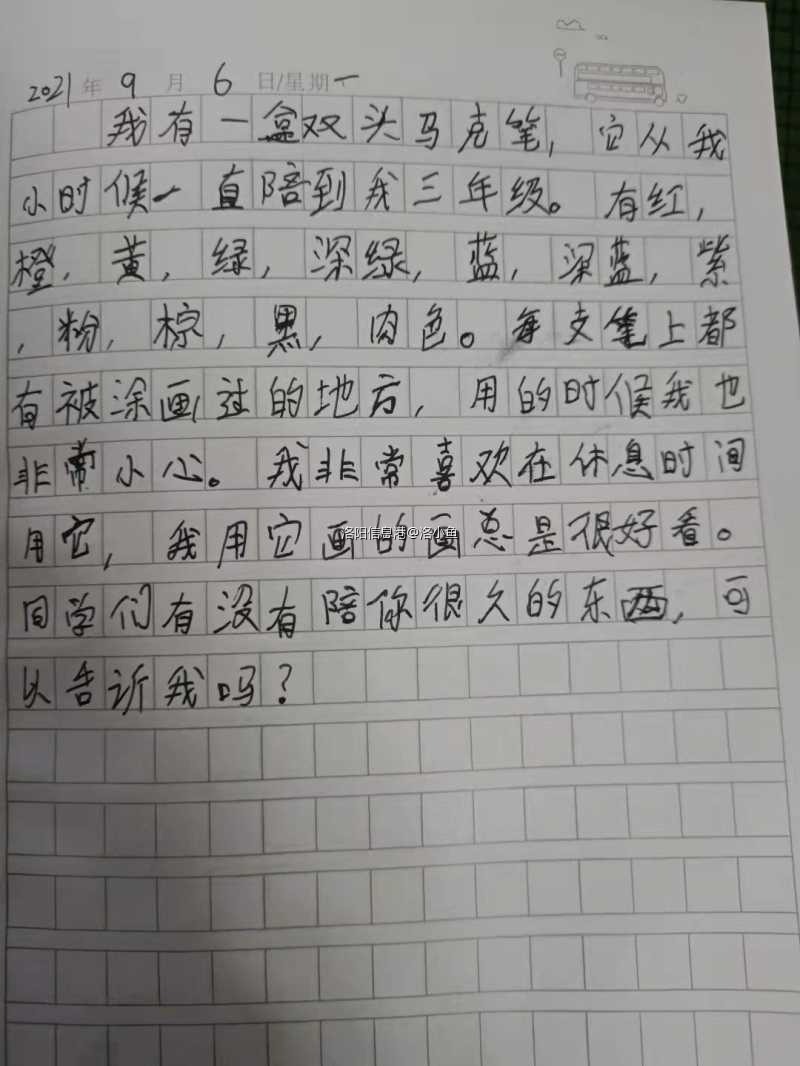 2021年9月6日/星期一
我有一盒双头马克笔，它从我
小时候一直陪到我三年级。有红，
橙，黄，绿，深绿，蓝，深蓝，紫
，粉，棕，黑，肉色。每支笔上都
有被涂画过的地方，用的时候我也
非常小心。我非常喜欢在休息时间
用它，我用它画的画总是很好看。
洛阳信息港@洛小鱼
同学们有没有陪你很久的东西，可
以告诉我吗？